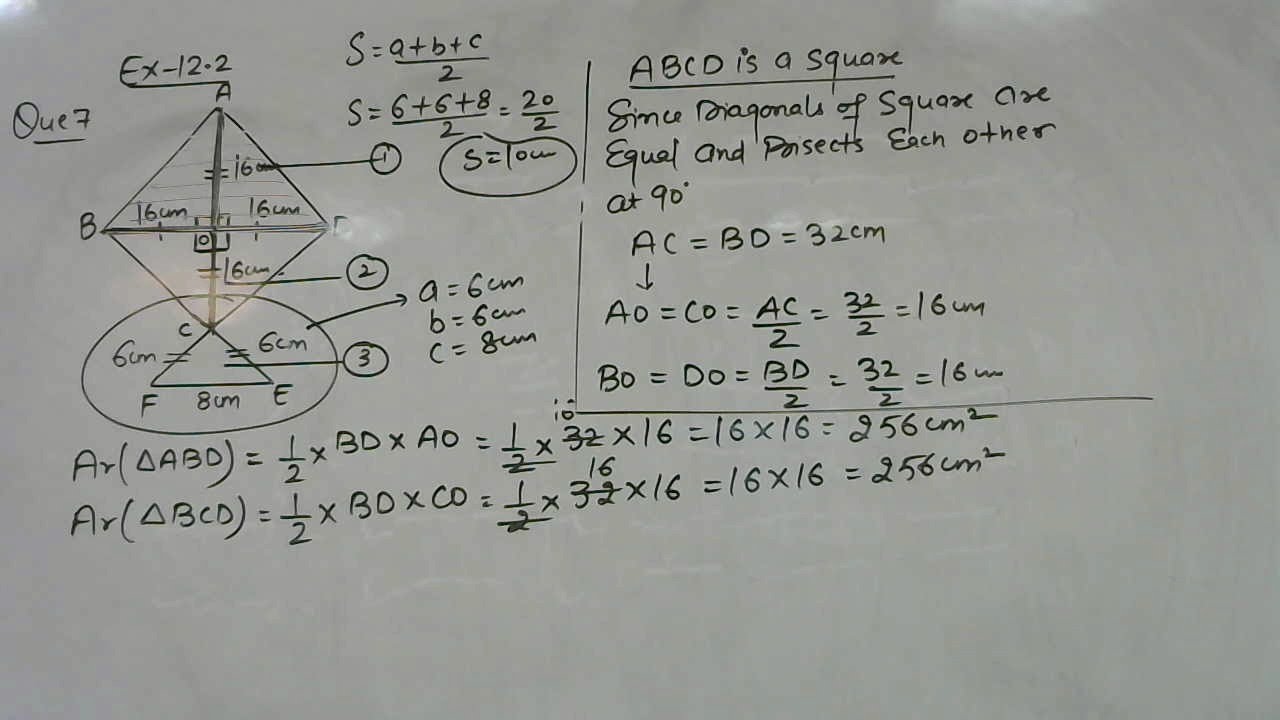 Ex-12.2
Que 7
A
16cm
1
16cm 16cm
B
O
16cm
2
C
6cm
6cm
3
F 8cm E
S = a+b+c/2
S = 6+6+8/2 = 20/2
S = 10cm
a = 6cm
b = 6cm
c = 8cm
ABCD is a square
Since Diagonals of Square are
Equal and Bisects Each other
at 90°
AC = BD = 32cm
↓
AO = CO = AC/2 = 32/2 = 16cm
BO = DO = BD/2 = 32/2 = 16cm
Ar(△ABD) = 1/2 × BD × AO = 1/2 × 32 × 16 = 16 × 16 = 256cm²
16
Ar(△BCD) = 1/2 × BD × CO = 1/2 × 32 × 16 = 16 × 16 = 256cm²